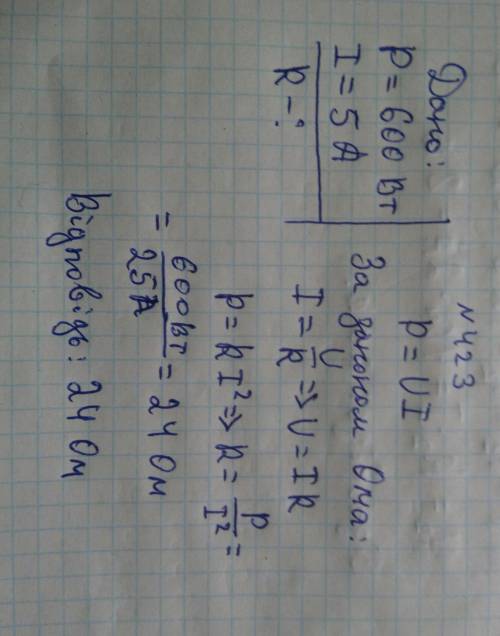 N423
Дано:
P = 600 Вт
I = 5 А
R - ?
P = UI
За законом Ома:
I = U/R => U = IR
P = RI² => R = P/I² =
= 600 Вт/25А = 24 Ом
Відповідь: 24 Ом